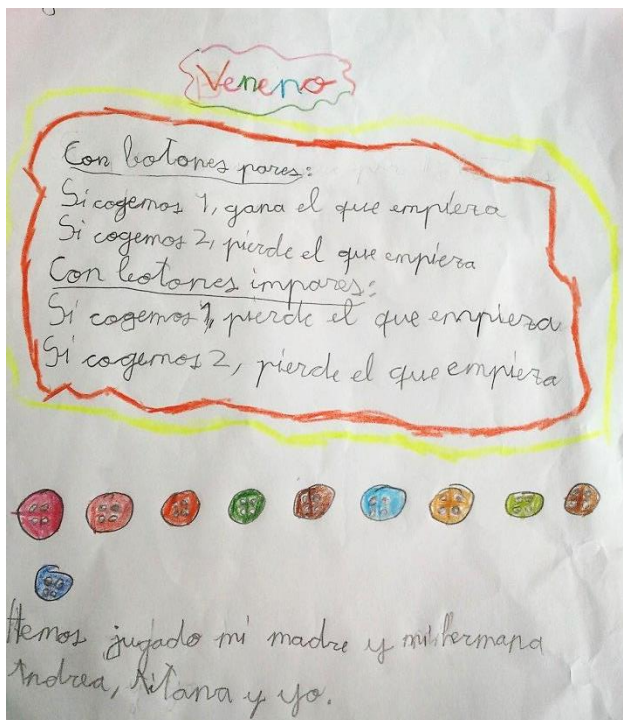 Veneno
Con botones pares:
Si cogemos 1, gana el que empieza
Si cogemos 2, pierde el que empieza
Con botones impares:
Si cogemos 1, pierde el que empieza
Si cogemos 2, pierde el que empieza
Hemos jugado mi madre y mi hermana
Andrea, Aitana y yo.